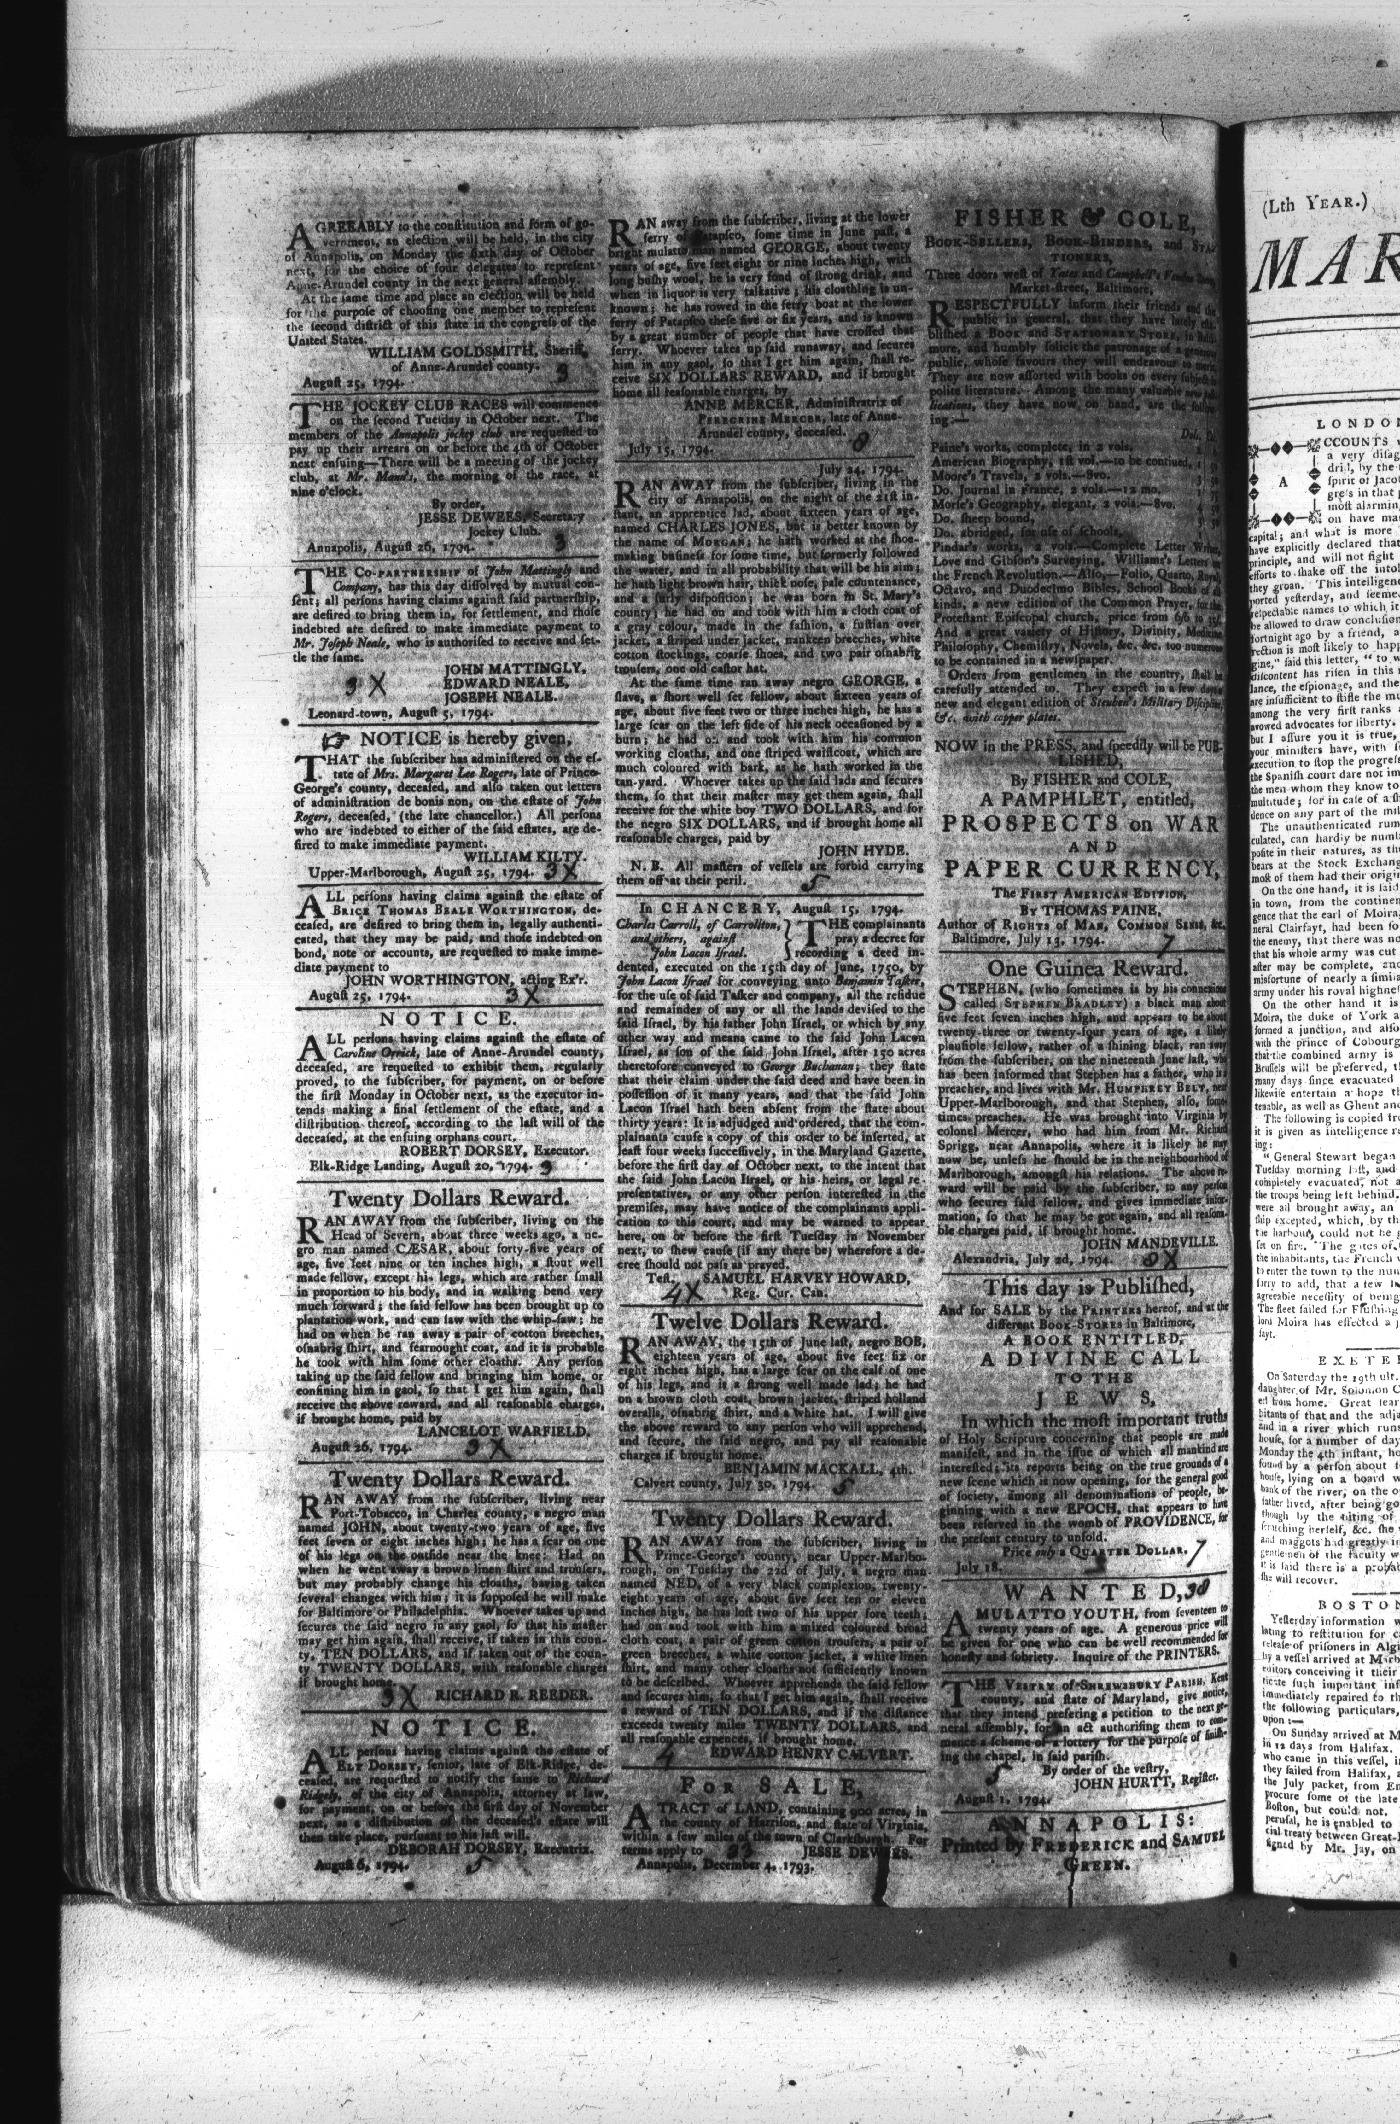 AGREEABLY to the constitution and form of go-
vernment, an election will be held, in the city
of Annapolis, on Monday the sixth day of October
next, for the choice of four delegates to represent
Anne-Arundel county in the next general assembly.
At the same time and place an election will be held
for the purpose of choosing one member to represent
the second district of this state in the congress of the
United States.
WILLIAM GOLDSMITH, Sheriff,
of Anne-Arundel county. 3
August 25, 1794.
THE JOCKEY CLUB RACES will commence
on the second Tuesday in October next. The
members of the Annapolis jockey club are requested to
pay up their arrears on or before the 4th of October
next ensuing—There will be a meeting of the jockey
club, at Mr. Mann's, the morning of the race, at
nine o'clock.
By order,
JESSE DEWEES, Secretary
Jockey Club.
Annapolis, August 26, 1794. 3
THE CO-PARTNERSHIP of John Mattingly and
Company, has this day dissolved by mutual con-
sent; all persons having claims against said partnership,
are desired to bring them in, for settlement, and those
indebted are desired to make immediate payment to
Mr. Joseph Neale, who is authorised to receive and set-
tle the same.
JOHN MATTINGLY,
3 X EDWARD NEALE,
JOSEPH NEALE.
Leonard-town, August 5, 1794.
☞ NOTICE is hereby given,
THAT the subscriber has administered on the es-
tate of Mrs. Margaret Lee Rogers, late of Prince-
George's county, deceased, and also taken out letters
of administration de bonis non, on the estate of John
Rogers, deceased, (the late chancellor.) All persons
who are indebted to either of the said estates, are de-
sired to make immediate payment.
WILLIAM KILTY.
Upper-Marlborough, August 25, 1794. 3 X
ALL persons having claims against the estate of
BRICE THOMAS BEALE WORTHINGTON, de-
ceased, are desired to bring them in, legally authenti-
cated, that they may be paid, and those indebted on
bond, note or accounts, are requested to make imme-
diate payment to
JOHN WORTHINGTON, acting Ex'r.
August 25, 1794. 3 X
NOTICE.
ALL persons having claims against the estate of
Caroline Orrick, late of Anne-Arundel county,
deceased, are requested to exhibit them, regularly
proved, to the subscriber, for payment, on or before
the first Monday in October next, as the executor in-
tends making a final settlement of the estate, and a
distribution thereof, according to the last will of the
deceased, at the ensuing orphans court.
ROBERT DORSEY, Executor.
Elk-Ridge Landing, August 20, 1794. 3
Twenty Dollars Reward.
RAN AWAY from the subscriber, living on the
Head of Severn, about three weeks ago, a ne-
gro man named CÆSAR, about forty-five years of
age, five feet nine or ten inches high, a stout well
made fellow, except his legs, which are rather small
in proportion to his body, and in walking bend very
much forward; the said fellow has been brought up to
plantation work, and can saw with the whip-saw; he
had on when he ran away a pair of cotton breeches,
osnabrig shirt, and fearnought coat, and it is probable
he took with him some other cloaths. Any person
taking up the said fellow and bringing him home, or
confining him in gaol, so that I get him again, shall
receive the above reward, and all reasonable charges,
if brought home, paid by
LANCELOT WARFIELD.
August 26, 1794. 3 X
Twenty Dollars Reward.
RAN AWAY from the subscriber, living near
Port-Tobacco, in Charles county, a negro man
named JOHN, about twenty-two years of age, five
feet seven or eight inches high; he has a scar on one
of his legs on the outside near the knee: Had on
when he went away a brown linen shirt and trousers,
but may probably change his cloaths, having taken
several changes with him; it is supposed he will make
for Baltimore or Philadelphia. Whoever takes up and
secures the said negro in any gaol, so that his master
may get him again, shall receive, if taken in this coun-
ty, TEN DOLLARS, and if taken out of the coun-
ty TWENTY DOLLARS, with reasonable charges
if brought home.
3 X RICHARD R. REEDER.
NOTICE.
ALL persons having claims against the estate of
ELY DORSEY, senior, late of Elk-Ridge, de-
ceased, are requested to notify the same to Richard
Ridgely, of the city of Annapolis, attorney at law,
for payment, on or before the first day of November
next, as a distribution of the deceased's estate will
then take place, pursuant to his last will.
DEBORAH DORSEY, Executrix.
August 6, 1794. 5
RAN away from the subscriber, living at the lower
ferry of Patapsco, some time in June past, a
bright mulatto man named GEORGE, about twenty
years of age, five feet eight or nine inches high, with
long bushy wool, he is very fond of strong drink, and
when in liquor is very talkative; his cloathing is un-
known; he has rowed in the ferry boat at the lower
ferry of Patapsco these five or six years, and is known
by a great number of people that have crossed that
ferry. Whoever takes up said runaway, and secures
him in any gaol, so that I get him again, shall re-
ceive SIX DOLLARS REWARD, and if brought
home all reasonable charges, by
ANNE MERCER, Administratrix of
PEREGRINE MERCER, late of Anne-
Arundel county, deceased.
July 15, 1794. 8
July 24, 1794.
RAN AWAY from the subscriber, living in the
city of Annapolis, on the night of the 21st in-
stant, an apprentice lad, about sixteen years of age,
named CHARLES JONES, but is better known by
the name of MORGAN; he hath worked at the shoe-
making business for some time, but formerly followed
the water, and in all probability that will be his aim;
he hath light brown hair, thick nose, pale countenance,
and a surly disposition; he was born in St. Mary's
county; he had on and took with him a cloth coat of
a gray colour, made in the fashion, a fustian over
jacket, a striped under jacket, nankeen breeches, white
cotton stockings, coarse shoes, and two pair osnabrig
trousers, one old castor hat.
At the same time ran away negro GEORGE, a
slave, a short well set fellow, about sixteen years of
age, about five feet two or three inches high, he has a
large scar on the left side of his neck occasioned by a
burn; he had on and took with him his common
working cloaths, and one striped waistcoat, which are
much coloured with bark, as he hath worked in the
tan-yard. Whoever takes up the said lads and secures
them, so that their master may get them again, shall
receive for the white boy TWO DOLLARS, and for
the negro SIX DOLLARS, and if brought home all
reasonable charges, paid by
JOHN HYDE.
N. B. All masters of vessels are forbid carrying
them off at their peril. 5
In CHANCERY, August 15, 1794.
Charles Carroll, of Carrollton, } THE complainants
and others, against pray a decree for
John Lacon Israel. recording a deed in-
dented, executed on the 15th day of June, 1750, by
John Lacon Israel for conveying unto Benjamin Tasker,
for the use of said Tasker and company, all the residue
and remainder of any or all the lands devised to the
said Israel, by his father John Israel, or which by any
other way and means came to the said John Lacon
Israel, as son of the said John Israel, after 150 acres
theretofore conveyed to George Buchanan; they state
that their claim under the said deed and have been in
possession of it many years, and that the said John
Lacon Israel hath been absent from the state about
thirty years: It is adjudged and ordered, that the com-
plainants cause a copy of this order to be inserted, at
least four weeks successively, in the Maryland Gazette,
before the first day of October next, to the intent that
the said John Lacon Israel, or his heirs, or legal re-
presentatives, or any other person interested in the
premises, may have notice of the complainants appli-
cation to this court, and may be warned to appear
here, on or before the first Tuesday in November
next, to shew cause (if any there be) wherefore a de-
cree should not pass as prayed.
Test. SAMUEL HARVEY HOWARD,
4 X Reg. Cur. Can.
Twelve Dollars Reward.
RAN AWAY, the 15th of June last, negro BOB,
eighteen years of age, about five feet six or
eight inches high, has a large scar on the calf of one
of his legs, and is a strong well made lad; he had
on a brown cloth coat, brown jacket, striped holland
overalls, osnabrig shirt, and a white hat. I will give
the above reward to any person who will apprehend,
and secure, the said negro, and pay all reasonable
charges if brought home.
BENJAMIN MACKALL, 4th.
Calvert county, July 30, 1794. 5
Twenty Dollars Reward.
RAN AWAY from the subscriber, living in
Prince-George's county, near Upper-Marlbo-
rough, on Tuesday the 22d of July, a negro man
named NED, of a very black complexion, twenty-
eight years of age, about five feet ten or eleven
inches high, he has lost two of his upper fore teeth;
had on and took with him a mixed coloured broad
cloth coat, a pair of green cotton trousers, a pair of
green breeches, a white cotton jacket, a white linen
shirt, and many other cloaths not sufficiently known
to be described. Whoever apprehends the said fellow
and secures him, so that I get him again, shall receive
a reward of TEN DOLLARS, and if the distance
exceeds twenty miles TWENTY DOLLARS, and
all reasonable expences, if brought home.
4 EDWARD HENRY CALVERT.
FOR SALE,
A TRACT of LAND, containing 900 acres, in
the county of Harrison, and state of Virginia,
within a few miles of the town of Clarksburgh. For
terms apply to 33 JESSE DEWEES.
Annapolis, December 4, 1793.
FISHER & COLE,
BOOK-SELLERS, BOOK-BINDERS, and STA-
TIONERS,
Three doors west of Yates and Campbell's Vendue Store,
Market-street, Baltimore,
RESPECTFULLY inform their friends and the
public in general, that they have lately esta-
blished a BOOK and STATIONARY STORE, in Balti-
more, and humbly solicit the patronage of a generous
public, whose favours they will endeavour to merit.
They are now assorted with books on every subject in
polite literature. Among the many valuable new pub-
lications, they have now on hand, are the follow-
ing:—
Dol.
Paine's works, complete, in 2 vols.
American Biography, 1st vol.—to be continued,
Moore's Travels, 2 vols.—8vo.
Do. Journal in France, 2 vols.—12 mo.
Morse's Geography, elegant, 2 vols.—8vo.
Do. sheep bound,
Do. abridged, for use of schools,
Pindar's works, vols.—Complete Letter Writer,
Love and Gibson's Surveying, Williams's Letters on
the French Revolution.—Also,—Folio, Quarto, Royal,
Octavo, and Duodecimo Bibles, School Books of all
kinds, a new edition of the Common Prayer, for the
Protestant Episcopal church, price from
And a great variety of History, Divinity, Medicine,
Philosophy, Chemistry, Novels, &c. &c. too numerous
to be contained in a newspaper.
Orders from gentlemen in the country, shall be
carefully attended to. They expect in a few days a
new and elegant edition of Steuben's Military Discipline,
&c. with copper plates.
NOW in the PRESS, and speedily will be PUB-
LISHED,
By FISHER and COLE,
A PAMPHLET, entitled,
PROSPECTS on WAR
AND
PAPER CURRENCY,
The FIRST AMERICAN EDITION,
By THOMAS PAINE,
Author of RIGHTS of MAN, COMMON SENSE, &c.
Baltimore, July 13, 1794. 7
One Guinea Reward.
STEPHEN, (who sometimes is by his connexions
called STEPHEN BRADLEY) a black man about
five feet seven inches high, and appears to be about
twenty-three or twenty-four years of age, a likely
plausible fellow, rather of a shining black, ran away
from the subscriber, on the nineteenth June last, who
has been informed that Stephen has a father, who is a
preacher, and lives with Mr. HUMPHREY BELT, near
Upper-Marlborough, and that Stephen, also, some-
times preaches. He was brought into Virginia by
colonel Mercer, who had him from Mr. Richard
Sprigg, near Annapolis, where it is likely he may
now be, unless he should be in the neighbourhood of
Marlborough, amongst his relations. The above re-
ward will be paid by the subscriber, to any person
who secures said fellow, and gives immediate infor-
mation, so that he may be got again, and all reasona-
ble charges paid, if brought home.
JOHN MANDEVILLE.
Alexandria, July 2d, 1794. 8 X
This day is Published,
And for SALE by the PRINTERS hereof, and at the
different BOOK-STORES in Baltimore,
A BOOK ENTITLED,
A DIVINE CALL
TO THE
JEWS,
In which the most important truths
of Holy Scripture concerning that people are made
manifest, and in the issue of which all mankind are
interested; its reports being on the true grounds of a
new scene which is now opening, for the general good
of society, among all denominations of people, be-
ginning with a new EPOCH, that appears to have
been reserved in the womb of PROVIDENCE, for
the present century to unfold.
Price only a QUARTER DOLLAR. 7
July 18.
WANTED, 38
A MULATTO YOUTH, from seventeen to
twenty years of age. A generous price will
be given for one who can be well recommended for
honesty and sobriety. Inquire of the PRINTERS.
THE VESTRY of SHREWSBURY PARISH, Kent
county, and state of Maryland, give notice,
that they intend prefering a petition to the next ge-
neral assembly, for an act authorising them to com-
mence a scheme of a lottery for the purpose of finish-
ing the chapel, in said parish.
By order of the vestry,
5 JOHN HURTT, Register.
August 1, 1794.
ANNAPOLIS:
Printed by FREDERICK and SAMUEL
GREEN.
(Lth YEAR.)
MAR
LONDO
ACCOUNTS
a very disag
by the
spirit of Jacob
gress in that
most alarming
on have ma
capital; and what is more
have explicitly declared that
principle, and will not fight
efforts to shake off the intol
they groan. This intelligen
ported yesterday, and seeme
respectable names to which it
be allowed to draw conclusion
fortnight ago by a friend, a
rection is most likely to happ
gine," said this letter, "to w
discontent has risen in this
lance, the espionage, and the
are insufficient to stifle the mu
among the very first ranks
avowed advocates for liberty.
but I assure you it is true,
your ministers have, with
execution to stop the progress
the Spanish court dare not im
the men whom they know to
multitude; for in case of a
dence on any part of the mil
The unauthenticated rum
culated, can hardly be numb
posite in their natures, as the
bears at the Stock Exchang
most of them had their origin
On the one hand, it is said
in town, from the continen
gence that the earl of Moira,
neral Clairfayt, had been fo
the enemy, that there was no
that his whole army was cut
after may be complete, and
misfortune of nearly a simila
army under his royal highnes
On the other hand it is
Moira, the duke of York a
formed a junction, and also
with the prince of Cobourg
that the combined army is
Brussels will be preserved, th
many days since evacuated
likewise entertain a hope th
tenable, as well as Ghent and
The following is copied fro
it is given as intelligence
ing:
"General Stewart began
Tuesday morning last, and
completely evacuated, not a
the troops being left behind.
were all brought away, an
ship excepted, which, by th
the harbour, could not be
set on fire. The gates of
the inhabitants, the French
to enter the town to the num
sorry to add, that a few
agreeable necessity of being
The fleet sailed for Flushing
lord Moira has effected a
fayt.
EXETE
On Saturday the 19th ult.
daughter of Mr. Solomon C
ed from home. Great fear
bitants of that and the adja
and in a river which runs
house, for a number of day
Monday the 4th instant, he
found by a person about
house, lying on a board
bank of the river, on the
father lived, after being go
though by the biting of
scratching herself, &c. she
and maggots had greatly in
gentlemen of the faculty w
it is said there is a probab
she will recover.
BOSTON
Yesterday information w
lating to restitution for ca
release of prisoners in Algi
by a vessel arrived at Marb
editors conceiving it their
ticate such important inf
immediately repaired to th
the following particulars,
upon:—
On Sunday arrived at M
in 12 days from Halifax.
who came in this vessel, in
they sailed from Halifax, a
the July packet, from En
procure some of the late
Boston, but could not,
perusal, he is enabled to
cial treaty between Great-
signed by Mr. Jay, on